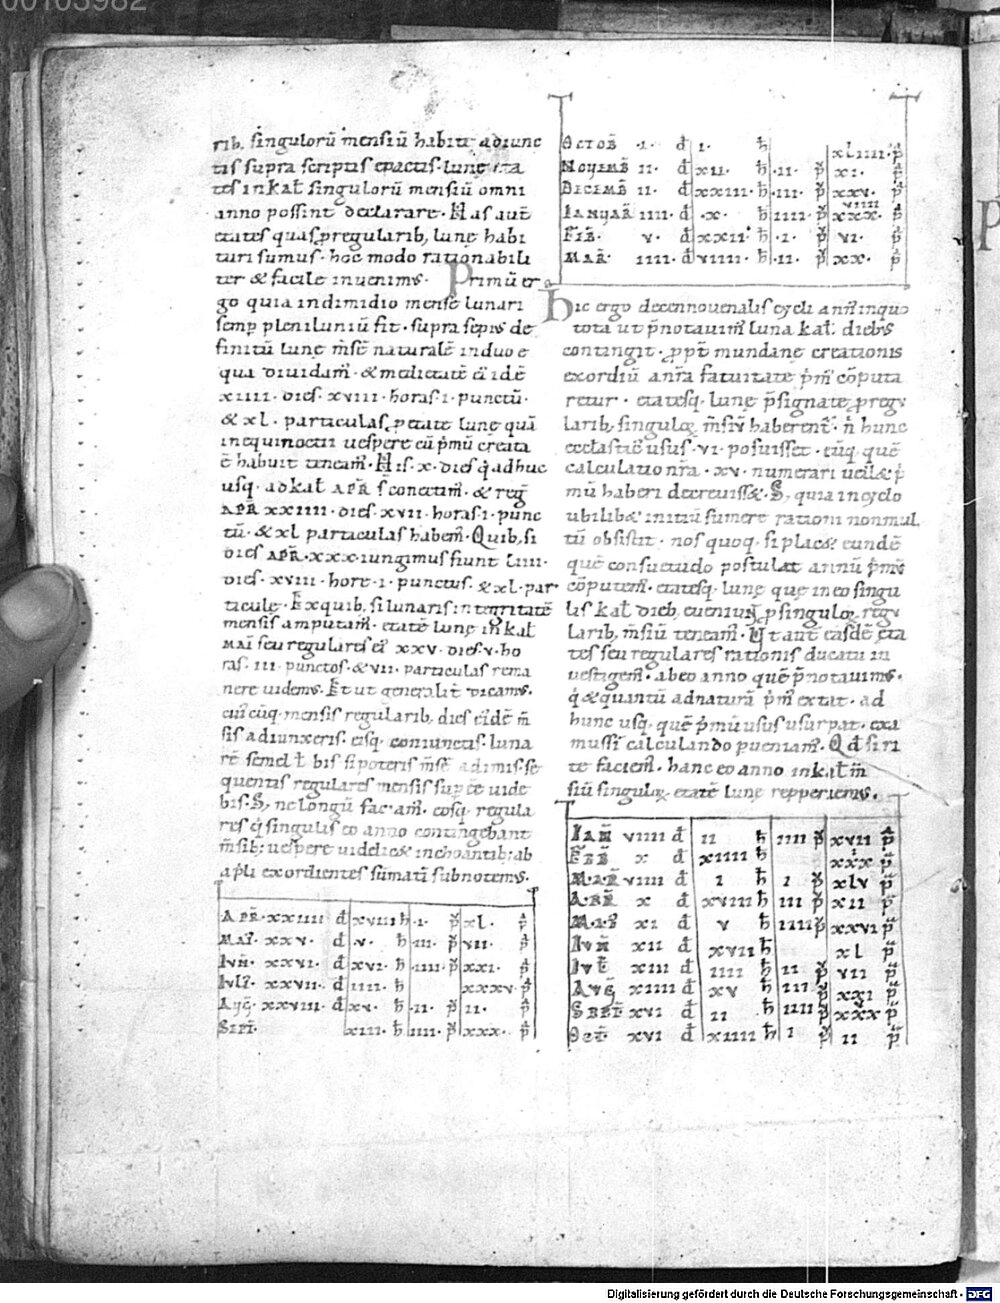 00103982
rib, singulorū mensiū habita adiunc
tis supra scriptis epactis lunę ęta
tes in kaƚ singulorū mensiū omni
anno possint declarare. Has aut̄
etates quas p̱regularib, lunę habi
turi sumus. hoc modo rationabili
ter & facile inuenim᷒. Primū er
go quia in dimidio mense lunari
semp̱ pleniluniū fit. supra sep̱is de
finitū lunę m̄sē naturalē in duo ę
qua diuidam᷒. & medietatē eī idē
xiiii. dies. xviii. horas. i. punctū.
& xl. particulas, p̱ etate lunę quā
in equinoctii uespere cū p̄mū creata
ē habuit teneam᷒. His. x. dies q̇ adhuc
usq. ad kaƚ APR̄ s̄ conectim᷒. & reg̅
APR̄ xxiiii. dies. xvii. horas. i. punc
tū. & xl particulas habem᷒. Quib, si
dies APR̄. xxx. iungimus fiunt liiii.
dies. xviii. hore. i. punctus. & xl. par
ticule. Ex quib, si lunaris integritatē
mensis amputam᷒. etatē lunę in kaƚ
MAI seu regulares ei᷒ xxv. dies. v. ho
ras. iii. punctos. & vii. particulas rema
nere uidem᷒. Et ut generalit̄ dicam᷒.
cui᷒cūq. mensis regularib, dies ei᷒dē m̄
sis adiunxeris. eisq. coniunctis. luna
rē semel ƚ bis si poteris m̄sē adimis. se
quentis regulares mensis sup̱ ēē uide
bis. S, ne longū faciam᷒. eosq. regula
res q̇ singulis eo anno contingebant
m̄sib; uespere uidelic& inchoantib; ab
ap̄li exordientes sūmatī subnotem᷒.
APR̄. xxiiii đ xviii ħ .i. p̱ xl. p̄
MAI᷒. xxv. đ .v. ħ .iii. p̱ vii. p̄
IVN̄. xxvi. đ xvi. ħ .iiii. p̱ xxi. p̄
IVLI᷒. xxvii. đ iiii. ħ xxxv. p̄
AVG̅. xxviii. đ xv. ħ .ii. p̱ ii. p̄
SEPT̄. xiii. ħ iiii. p̱ xxx. p̄
OCTOB̄ .i. đ i. ħ xliiii. p̄
NOVEMB̄ ii. đ xii. ħ .ii. p̱ xi. p̄
DECEMB̄ ii. đ xxiii. ħ .iii. p̱ xxv. p̄
IANUAR̄ iiii. đ .x. ħ iiii. p̱ xxx. viiii p̄
FEB̄. v. đ xxii. ħ .i. p̱ vi. p̄
MAR̄. iiii. đ viiii. ħ .ii. p̱ xx. p̄
Hic ergo decennouenalis cycli ann᷒ in quo
tota ut p̄notauim᷒ luna kaƚ. dieb᷒
contingit. p̱pt̄ mundanę creationis
exordiū a nr̄a fatuitate p̄m᷒ cōputa
retur. etatesq. lunę p̄signatę p̱ regu
larib, singulo᷒ m̄siū haberent᷒. n̄ hunc
ecclasticē usus. vi. posuisset. eūq. quē
calculatio nr̄a. xv. numerari uel& p̄
mū haberi decreuiss&. S, quia in cyclo
ubilib& initiū sumere rationi non mul
tū obsistit. nos quoq. si plac& eundē
quē consuetudo postulat annū p̄mū
cōputem᷒. etatesq. lunę que in eo singu
lis kaƚ dieb, eueniunt p̱ singulo᷒ regu
larib, m̄siū teneam᷒. Ut aut̄ easdē eta
tes seu regulares rationis ducatu in
uestigem᷒. ab eo anno quē p̄notauim᷒.
q̇ & quantū ad naturā p̄m᷒ extat. ad
hunc usq. quē p̄mū usus usurpat. exa
mussī calculando p̱ueniam᷒. Qđ si ri
te faciem᷒. hanc eo anno in kaƚ m̄
siū singulo᷒ etatē lunę repperiem᷒.
IAN̄ viiii đ ii ħ iiii p̱ xvii p̄
FEB̄ x đ xiiii ħ xxx p̄
MAR̄ viiii đ i ħ i p̱ xlv p̄
APR̄ x đ xviii ħ iii p̱ xii p̄
MAI᷒ xi đ v ħ iiii p̱ xxvi p̄
IVN̄ xii đ xvii ħ xl p̄
IVƚ xiii đ iiii ħ ii p̱ vii p̄
AVG̅ xiiii đ xv ħ iii p̱ xxi p̄
SEPT̄ xvi đ ii ħ iiii p̱ xxx p̄
OCT̄ xvi đ xiiii ħ i p̱ ii p̄
Digitalisierung gefördert durch die Deutsche Forschungsgemeinschaft - DFG